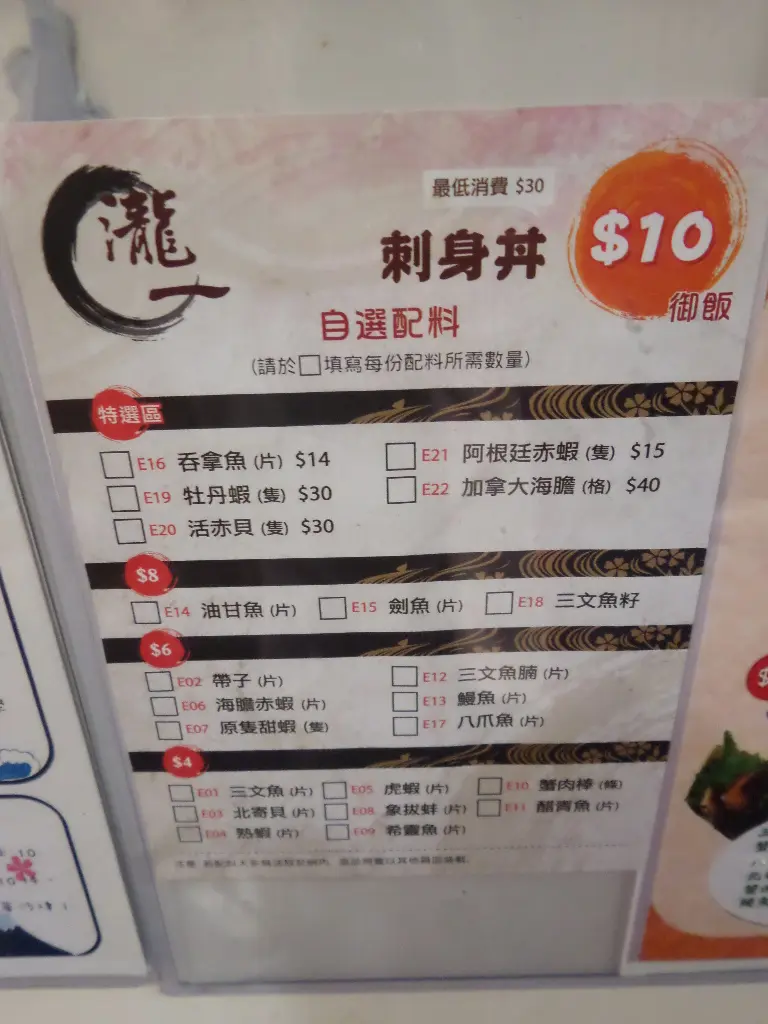 瀧一
最低消費 $30
刺身丼
$10
御飯
自選配料
(請於□填寫每份配料所需數量)
特選區
E16 吞拿魚 (片) $14
E21 阿根廷赤蝦 (隻) $15
E19 牡丹蝦 (隻) $30
E22 加拿大海膽 (格) $40
E20 活赤貝 (隻) $30
$8
E14 油甘魚 (片)
E15 劍魚 (片)
E18 三文魚籽
$6
E02 帶子 (片)
E12 三文魚腩 (片)
E06 海膽赤蝦 (片)
E13 鰻魚 (片)
E07 原隻甜蝦 (隻)
E17 八爪魚 (片)
$4
E01 三文魚 (片)
E05 虎蝦 (片)
E10 蟹肉棒 (條)
E03 北寄貝 (片)
E08 象拔蚌 (片)
E11 醋青魚 (片)
E04 熟蝦 (片)
E09 希靈魚 (片)